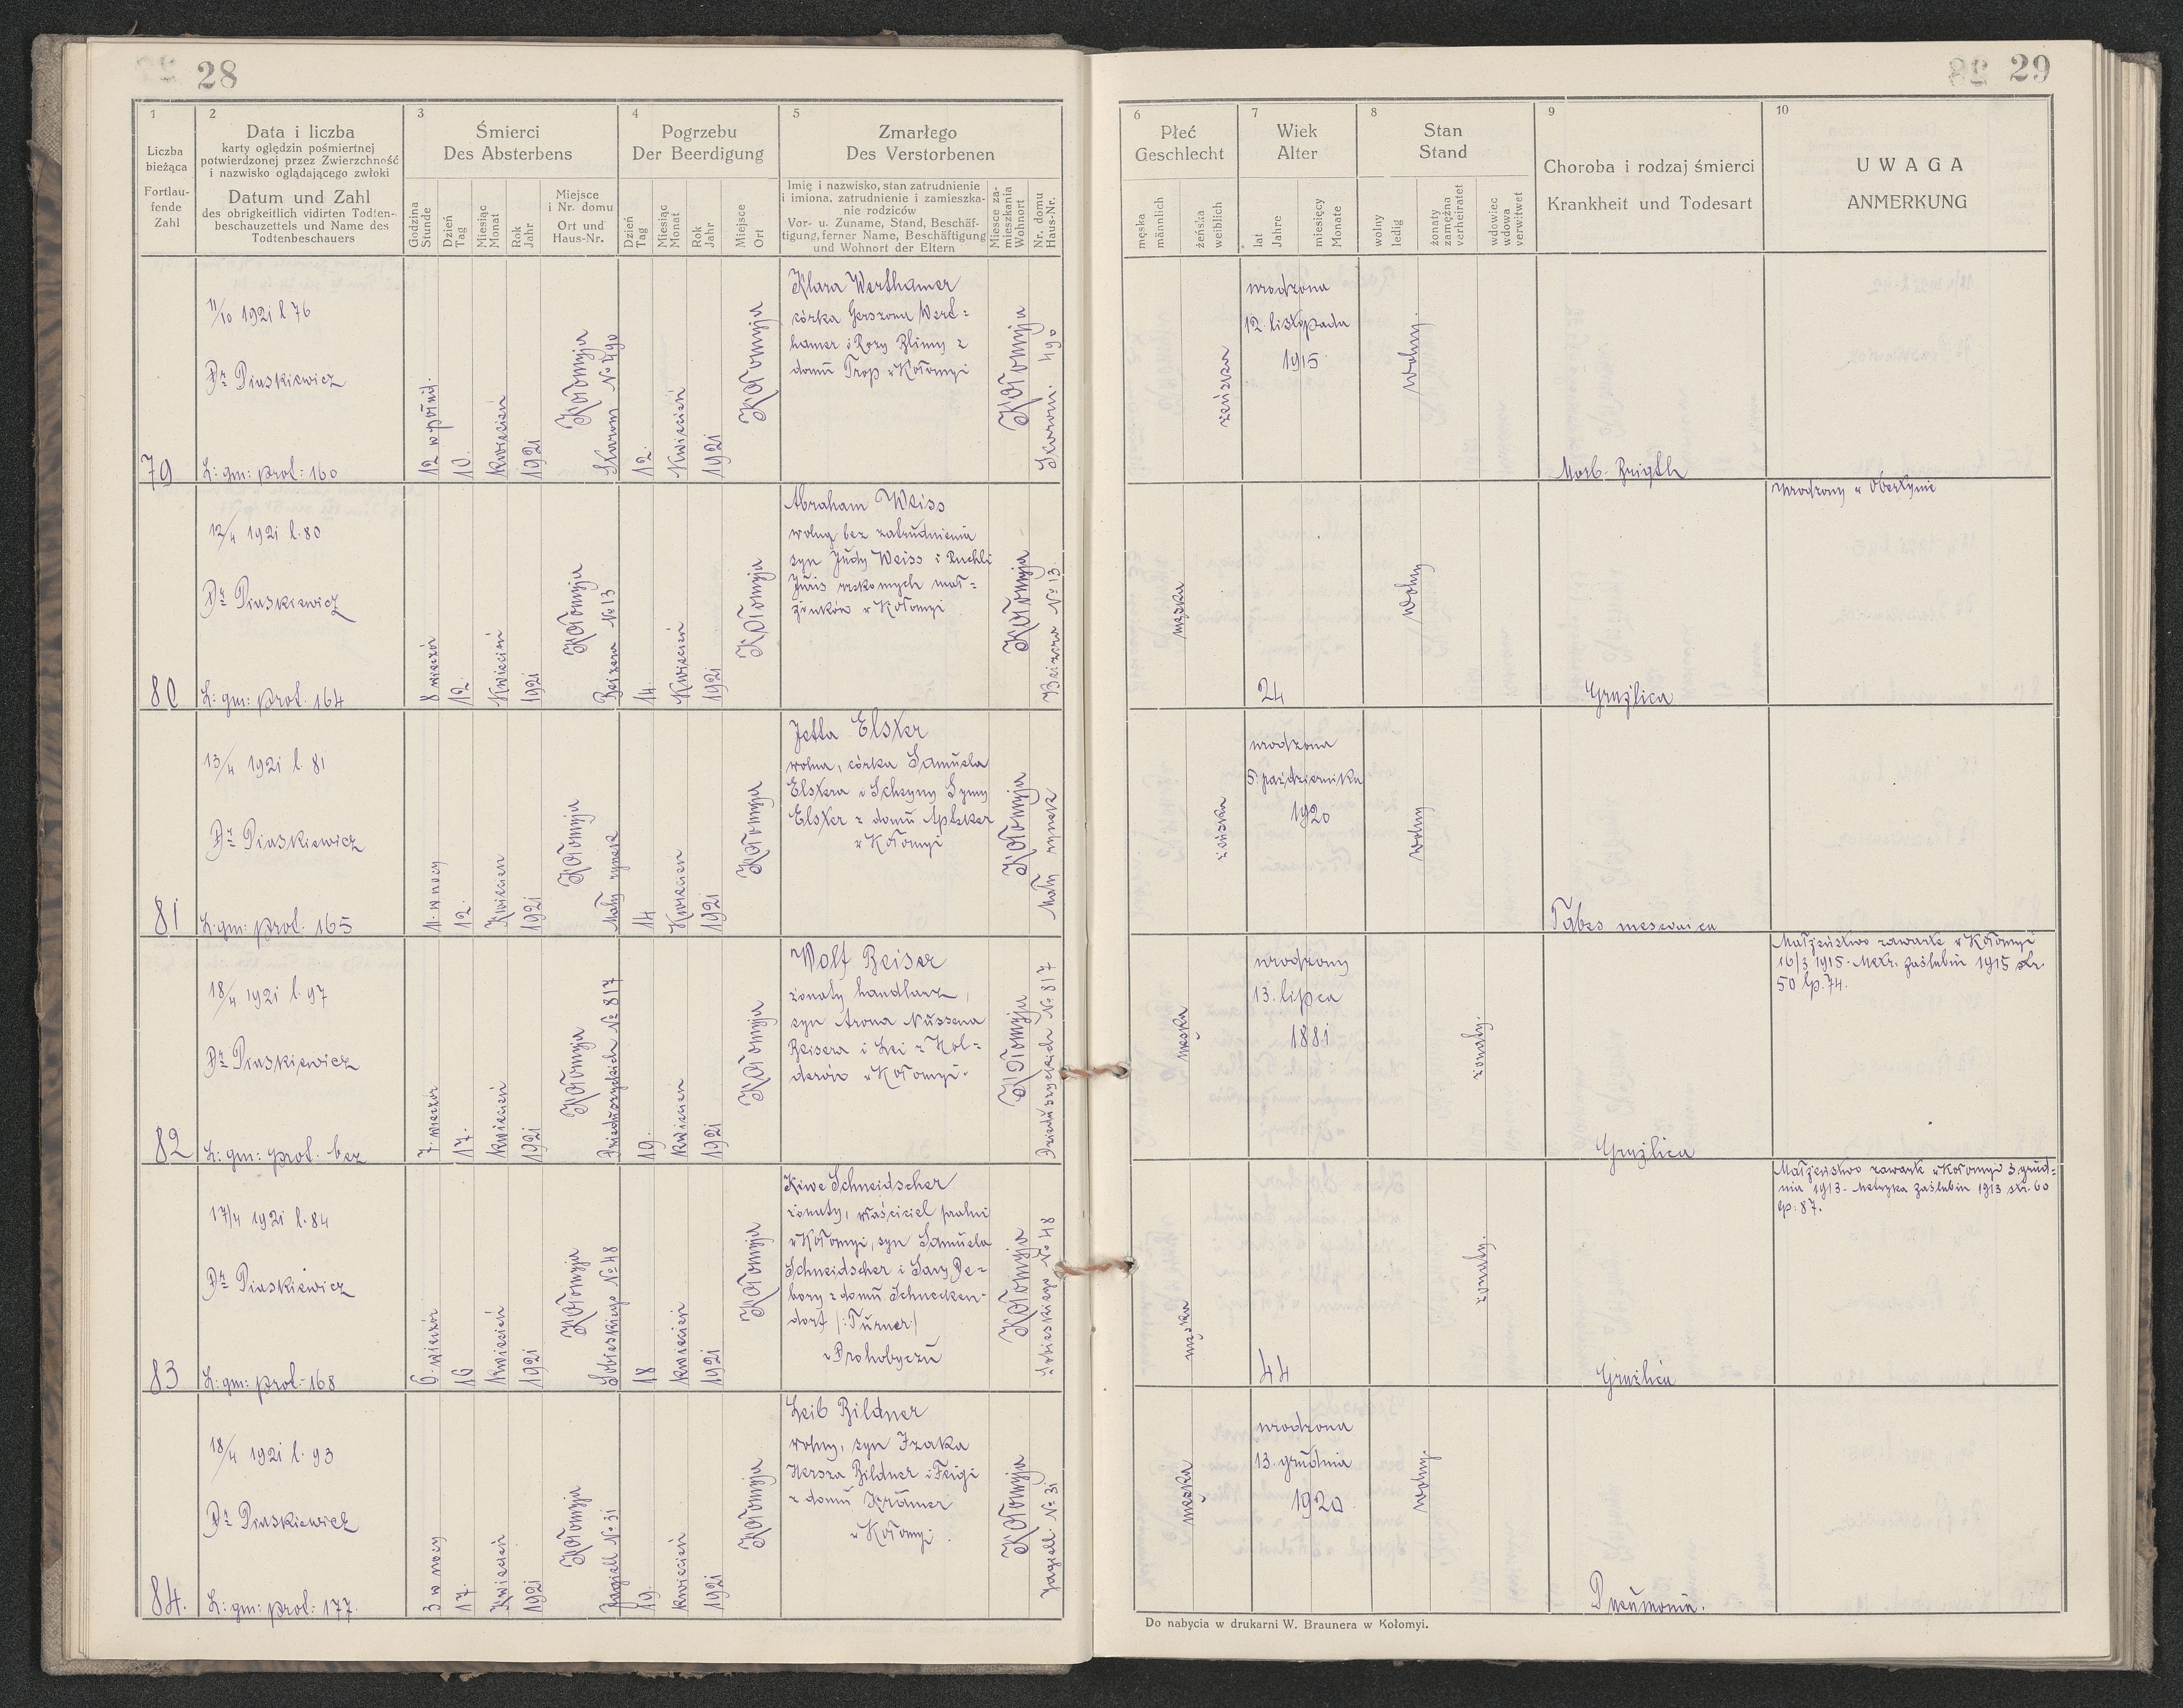 28
29
1
Liczba
bieżąca
Fortlau-
fende
Zahl
2
Data i liczba
karty oględzin pośmiertnej
potwierdzonej przez Zwierzchność
i nazwisko oglądającego zwłoki
Datum und Zahl
des obrigkeitlich vidirten Todten-
beschauzettels und Name des
Todtenbeschauers
3
Śmierci
Des Absterbens
Godzina
Stunde
Dzień
Tag
Miesiąc
Monat
Rok
Jahr
Miejsce
i Nr. domu
Ort und
Haus-Nr.
4
Pogrzebu
Der Beerdigung
Dzień
Tag
Miesiąc
Monat
Rok
Jahr
Miejsce
Ort
5
Zmarłego
Des Verstorbenen
Imię i nazwisko, stan zatrudnienie
i imiona, zatrudnienie i zamieszka-
nie rodziców
Vor- u. Zuname, Stand, Beschäf-
tigung, ferner Name, Beschäftigung
und Wohnort der Eltern
Miesce za-
mieszkania
Wohnort
Nr. domu
Haus-Nr.
6
Płeć
Geschlecht
męska
männlich
żeńska
weiblich
7
Wiek
Alter
lat
Jahre
miesięcy
Monate
8
Stan
Stand
wolny
ledig
żonaty
zamężna
verheiratet
wdowiec
wdowa
verwitwet
9
Choroba i rodzaj śmierci
Krankheit und Todesart
10
UWAGA
ANMERKUNG
79
11/10 1921 l 76
Dr Piaskiewicz
L: gm: prol: 160
12 w połud.
10.
Kwiecień
1921
Kołomyja
Skarom No 490
12.
Kwiecień
1921
Kołomyja
Klara Werthamer
córka Gerszona Wert=
hamer i Rozy Blimy z
domu Trop w Kołomyi
Kołomyja
490
żeńska
urodzona
12. listopada
1915
wolny.
Morb. Brigth
80
12/4 1921 l. 80
Dr Piaskiewicz
L: gm: prol. 164
8 wieczór
12.
Kwiecień
1921
Kołomyja
Beisera No 13
14.
Kwiecień
1921
Kołomyja
Abraham Weiss
wolny bez zatrudnienia
syn Judy Weiss i Ruchli
Juris rzekomych mał=
żonków w Kołomyi
Kołomyja
Beisera No 13.
męska
24
wolny
Gruźlica
urodzony w Obertynie
81
13/4 1921 l. 81
Dr Piaskiewicz
L: gm: prol. 165
11. w nocy
12.
Kwiecień
1921
Kołomyja
Mały rynek
14
Kwiecień
1921
Kołomyja
Jetta Elster
wolna, córka Samuela
Elstera i Scheyny Symy
Elster z domu Apteker
w Kołomyi
Kołomyja
Mały rynek
żeńska
urodzona
5. października
1920
wolny
Tabes meseraica
82
18/4 1921 l. 97
Dr Piaskiewicz
L: gm: prol. bez
7. wieczór
17.
Kwiecień
1921
Kołomyja
Dzieduszyckich No 817
19.
Kwiecień
1921
Kołomyja
Wolf Beiser
żonaty handlarz,
syn Arona Nussena
Beisera i Lei z Hol=
derów w Kołomyi.
Kołomyja
Dzieduszyckich No 817
męska
urodzony
13. lipca
1881
żonaty.
Gruźlica
Małżeństwo zawarte w Kołomyi
16/3 1915. Metr. zaślubin 1915 str.
50 lp. 74.
83
17/4 1921 l. 84
Dr Piaskiewicz
L: gm: prol. 168
6. wieczór
16
Kwiecień
1921
Kołomyja
Sobieskiego No 48
18
Kwiecień
1921
Kołomyja
Kiwe Schneidscher
żonaty, właściciel pralni
w Kołomyi, syn Samuela
Schneidscher i Sary De=
bory z domu Schnecken-
dorf /:Turner:/
w Drohobyczu
Kołomyja
Sobieskiego No 48
męska
44
żonaty.
Gruźlica
Małżeństwo zawarte w Kołomyi 3 grud=
nia 1913. Metryka zaślubin 1913 str. 60
lp: 87.
84.
18/4 1921 l. 93
Dr Piaskiewicz
L: gm: prol: 177.
3 w nocy
17.
Kwiecień
1921
Kołomyja
Jagiell No 31
19.
Kwiecień
1921
Kołomyja
Leib Bildner
wolny, syn Izaka
Hersza Bildner i Feigi
z domu Krämer
w Kołomyi.
Kołomyja
Jagiell. No 31
męska
urodzona
13. grudnia
1920
wolny.
Pneumonia.
Do nabycia w drukarni W. Braunera w Kołomyi.